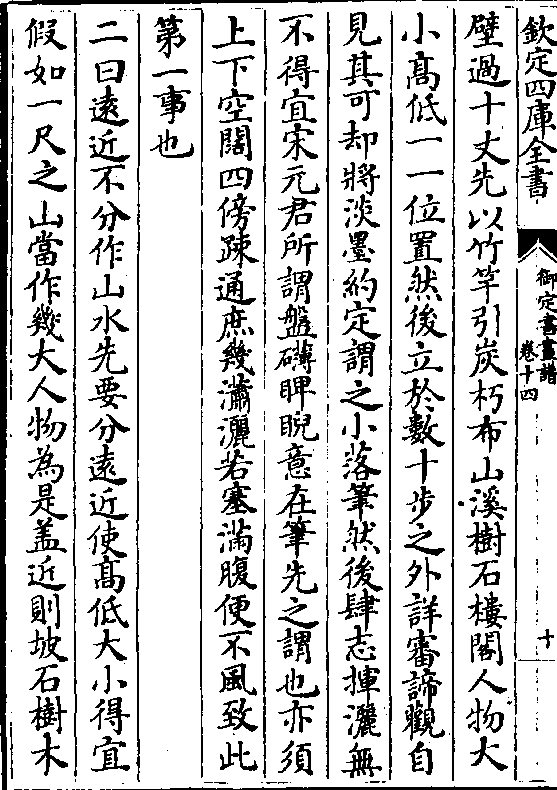 欽定四庫全書
御定書畫譜
卷十四
十
壁過十丈先以竹竿引炭朽布山溪樹石樓閣人物大
小髙低一一位置然後立於數十步之外詳審諦觀自
見其可却將淡墨約定謂之小落筆然後肆志揮灑無
不得宜宋元君所謂盤礴睥睨意在筆先之謂也亦須
上下空闊四傍疎通庶幾瀟灑若塞滿腹便不風致此
第一事也
二曰遠近不分作山水先要分遠近使髙低大小得宜
假如一尺之山當作幾大人物為是盖近則坡石樹木